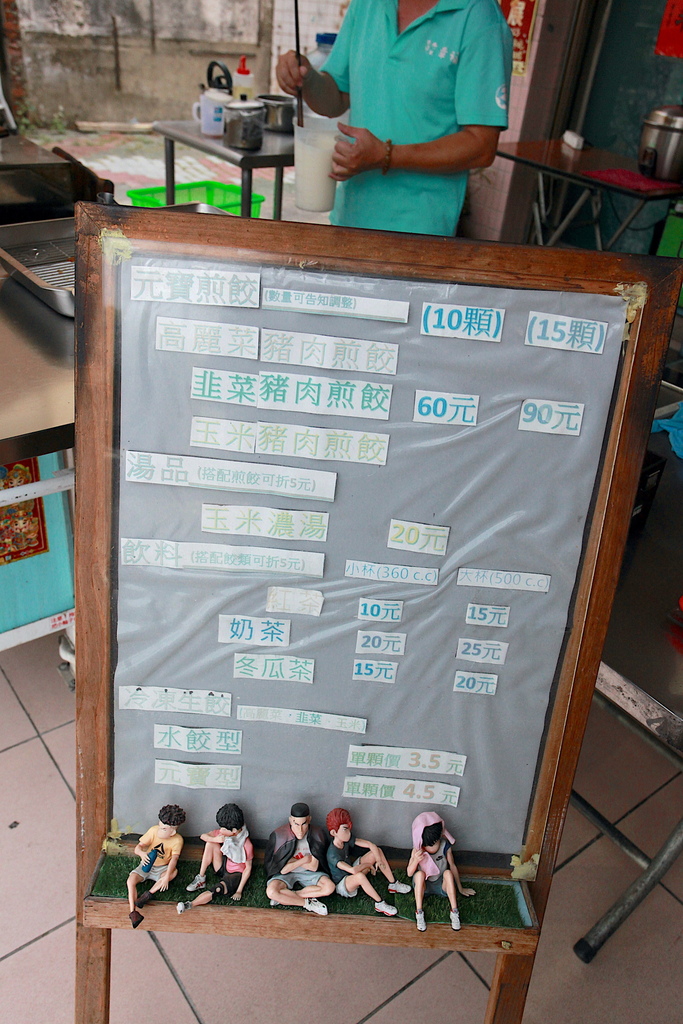 元寶煎餃 (數量可告知調整) (10顆) (15顆)
高麗菜豬肉煎餃
韭菜豬肉煎餃 60元 90元
玉米豬肉煎餃
湯品 (搭配煎餃可折5元)
玉米濃湯 20元
飲料 (搭配餃類可折5元) 小杯(360 c.c) 大杯(500 c.c)
紅茶 10元 15元
奶茶 20元 25元
冬瓜茶 15元 20元
冷凍生餃 (高麗菜、韭菜、玉米)
水餃型 單顆價 3.5 元
元寶型 單顆價 4.5 元